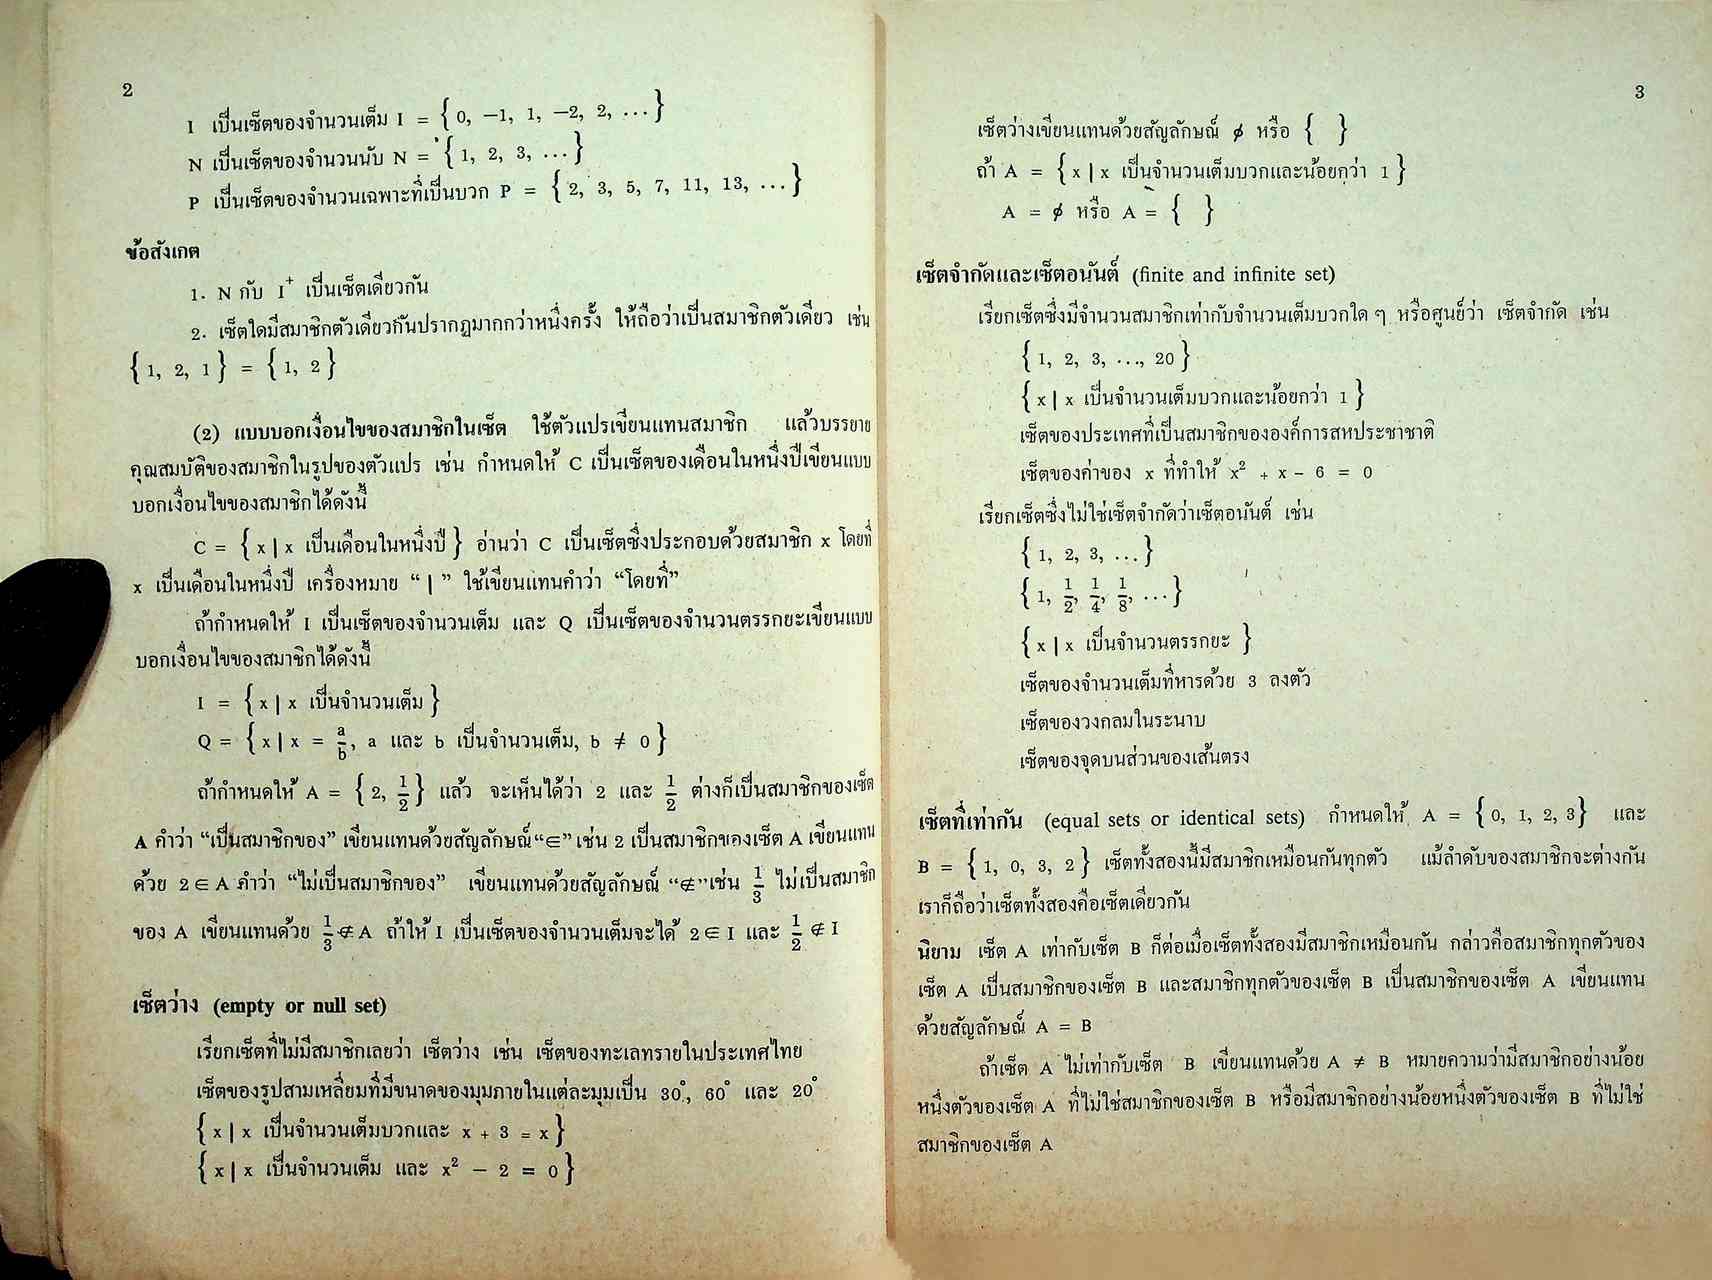 2
I เป็นเซ็ตของจำนวนเต็ม I = { 0, −1, 1, −2, 2, ... }
N เป็นเซ็ตของจำนวนนับ N = { 1, 2, 3, ... }
P เป็นเซ็ตของจำนวนเฉพาะที่เป็นบวก P = { 2, 3, 5, 7, 11, 13, ... }
ข้อสังเกต
1. N กับ I⁺ เป็นเซ็ตเดียวกัน
2. เซ็ตใดมีสมาชิกตัวเดียวกันปรากฏมากกว่าหนึ่งครั้ง ให้ถือว่าเป็นสมาชิกตัวเดียว เช่น
{ 1, 2, 1 } = { 1, 2 }
(2) แบบบอกเงื่อนไขของสมาชิกในเซ็ต ใช้ตัวแปรเขียนแทนสมาชิก แล้วบรรยาย
คุณสมบัติของสมาชิกในรูปของตัวแปร เช่น กำหนดให้ C เป็นเซ็ตของเดือนในหนึ่งปีเขียนแบบ
บอกเงื่อนไขของสมาชิกได้ดังนี้
C = { x | x เป็นเดือนในหนึ่งปี } อ่านว่า C เป็นเซ็ตซึ่งประกอบด้วยสมาชิก x โดยที่
x เป็นเดือนในหนึ่งปี เครื่องหมาย “ | ” ใช้เขียนแทนคำว่า “โดยที่”
ถ้ากำหนดให้ I เป็นเซ็ตของจำนวนเต็ม และ Q เป็นเซ็ตของจำนวนตรรกยะเขียนแบบ
บอกเงื่อนไขของสมาชิกได้ดังนี้
I = { x | x เป็นจำนวนเต็ม }
Q = { x | x = a/b, a และ b เป็นจำนวนเต็ม, b ≠ 0 }
ถ้ากำหนดให้ A = { 2, 1/2 } แล้ว จะเห็นได้ว่า 2 และ 1/2 ต่างก็เป็นสมาชิกของเซ็ต
A คำว่า “เป็นสมาชิกของ” เขียนแทนด้วยสัญลักษณ์“∈” เช่น 2 เป็นสมาชิกของเซ็ต A เขียนแทน
ด้วย 2 ∈ A คำว่า “ไม่เป็นสมาชิกของ” เขียนแทนด้วยสัญลักษณ์ “∉”เช่น 1/3 ไม่เป็นสมาชิก
ของ A เขียนแทนด้วย 1/3 ∉ A ถ้าให้ I เป็นเซ็ตของจำนวนเต็มจะได้ 2 ∈ I และ 1/2 ∉ I
เซ็ตว่าง (empty or null set)
เรียกเซ็ตที่ไม่มีสมาชิกเลยว่า เซ็ตว่าง เช่น เซ็ตของทะเลทรายในประเทศไทย
เซ็ตของรูปสามเหลี่ยมที่มีขนาดของมุมภายในแต่ละมุมเป็น 30°, 60° และ 20°
{ x | x เป็นจำนวนเต็มบวกและ x + 3 = x }
{ x | x เป็นจำนวนเต็ม และ x² − 2 = 0 }
3
เซ็ตว่างเขียนแทนด้วยสัญลักษณ์ ∅ หรือ { }
ถ้า A = { x | x เป็นจำนวนเต็มบวกและน้อยกว่า 1 }
A = ∅ หรือ A = { }
เซ็ตจำกัดและเซ็ตอนันต์ (finite and infinite set)
เรียกเซ็ตซึ่งมีจำนวนสมาชิกเท่ากับจำนวนเต็มบวกใด ๆ หรือศูนย์ว่า เซ็ตจำกัด เช่น
{ 1, 2, 3, ..., 20 }
{ x | x เป็นจำนวนเต็มบวกและน้อยกว่า 1 }
เซ็ตของประเทศที่เป็นสมาชิกขององค์การสหประชาชาติ
เซ็ตของค่าของ x ที่ทำให้ x² + x − 6 = 0
เรียกเซ็ตซึ่งไม่ใช่เซ็ตจำกัดว่าเซ็ตอนันต์ เช่น
{ 1, 2, 3, ... }
{ 1, 1/2, 1/4, 1/8, ... }
{ x | x เป็นจำนวนตรรกยะ }
เซ็ตของจำนวนเต็มที่หารด้วย 3 ลงตัว
เซ็ตของวงกลมในระนาบ
เซ็ตของจุดบนส่วนของเส้นตรง
เซ็ตที่เท่ากัน (equal sets or identical sets) กำหนดให้ A = { 0, 1, 2, 3 } และ
B = { 1, 0, 3, 2 } เซ็ตทั้งสองนี้มีสมาชิกเหมือนกันทุกตัว แม้ลำดับของสมาชิกจะต่างกัน
เราก็ถือว่าเซ็ตทั้งสองคือเซ็ตเดียวกัน
นิยาม เซ็ต A เท่ากับเซ็ต B ก็ต่อเมื่อเซ็ตทั้งสองมีสมาชิกเหมือนกัน กล่าวคือสมาชิกทุกตัวของ
เซ็ต A เป็นสมาชิกของเซ็ต B และสมาชิกทุกตัวของเซ็ต B เป็นสมาชิกของเซ็ต A เขียนแทน
ด้วยสัญลักษณ์ A = B
ถ้าเซ็ต A ไม่เท่ากับเซ็ต B เขียนแทนด้วย A ≠ B หมายความว่ามีสมาชิกอย่างน้อย
หนึ่งตัวของเซ็ต A ที่ไม่ใช่สมาชิกของเซ็ต B หรือมีสมาชิกอย่างน้อยหนึ่งตัวของเซ็ต B ที่ไม่ใช่
สมาชิกของเซ็ต A